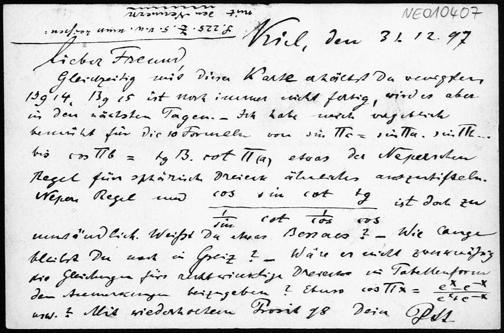 NE010407
S. 225 Z. 5 v. u. muss heissen:
mit den Nennern
Kiel, den 31.12.97
Lieber Freund,
Gleichzeitig mit dieser Karte erhältst Du
Bg 14, Bg 15 ist noch immer nicht fertig, wird es aber
in den nächsten Tagen. – Ich habe mich vergeblich
bemüht für die 10 Formeln von sin Πc = sin Πa . sin Π
bis cos Πb = tg B. cot Π(a) etwas der Neperschen
Regel fürs sphärische Dreieck ähnliches auszutüfteln.
Nepers Regel und cos sin cot tg ist doch zu
1/sin cot 1/cos cos
umständlich. Weißt Du etwas Besseres? – Wie lange
bleibst Du noch in Greiz? – Wäre es nicht zweckmäßig
die Gleichungen fürs rechtwinklige Dreieck in Tabellenform
den Anmerkungen beizugeben? Etwas cos Πx = e^x - e^-x / e^x + e^-x
usw.? Mit wiederholtem Prosit 98 Dein